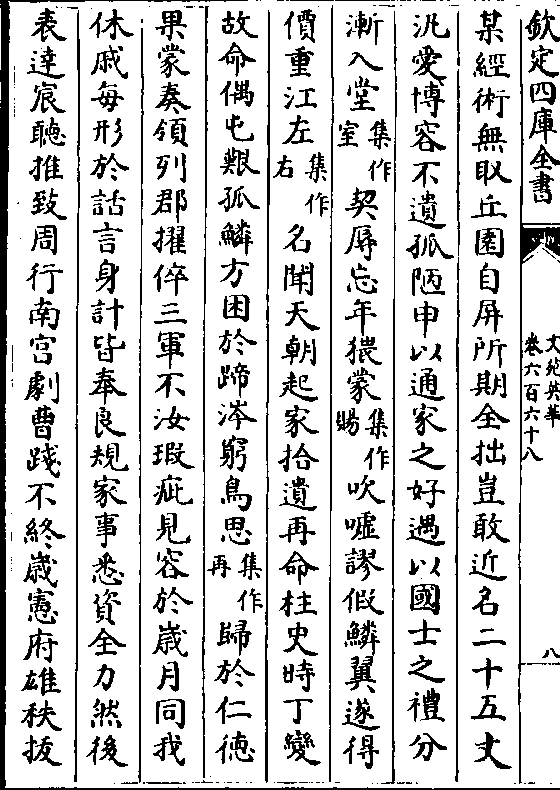 欽定四庫全書
文苑英華
卷六百六十八
八
某經術無取丘園自屏所期全拙豈敢近名二十五丈
汎愛博容不遺孤陋申以通家之好遇以國士之禮分
漸入堂集作室契辱忘年猥蒙集作賜吹噓謬假鱗翼遂得
價重江左集作右名聞天朝起家拾遺再命柱史時丁變
故命偶屯艱孤鱗方困於蹄涔窮鳥思集作再歸於仁德
果蒙奏領列郡擢倅三軍不汝瑕疵見容於歲月同我
休戚每形於話言身計皆奉良規家事悉資全力然後
表達宸聽推致周行南宮劇曹踐不終歲憲府雄秩拔